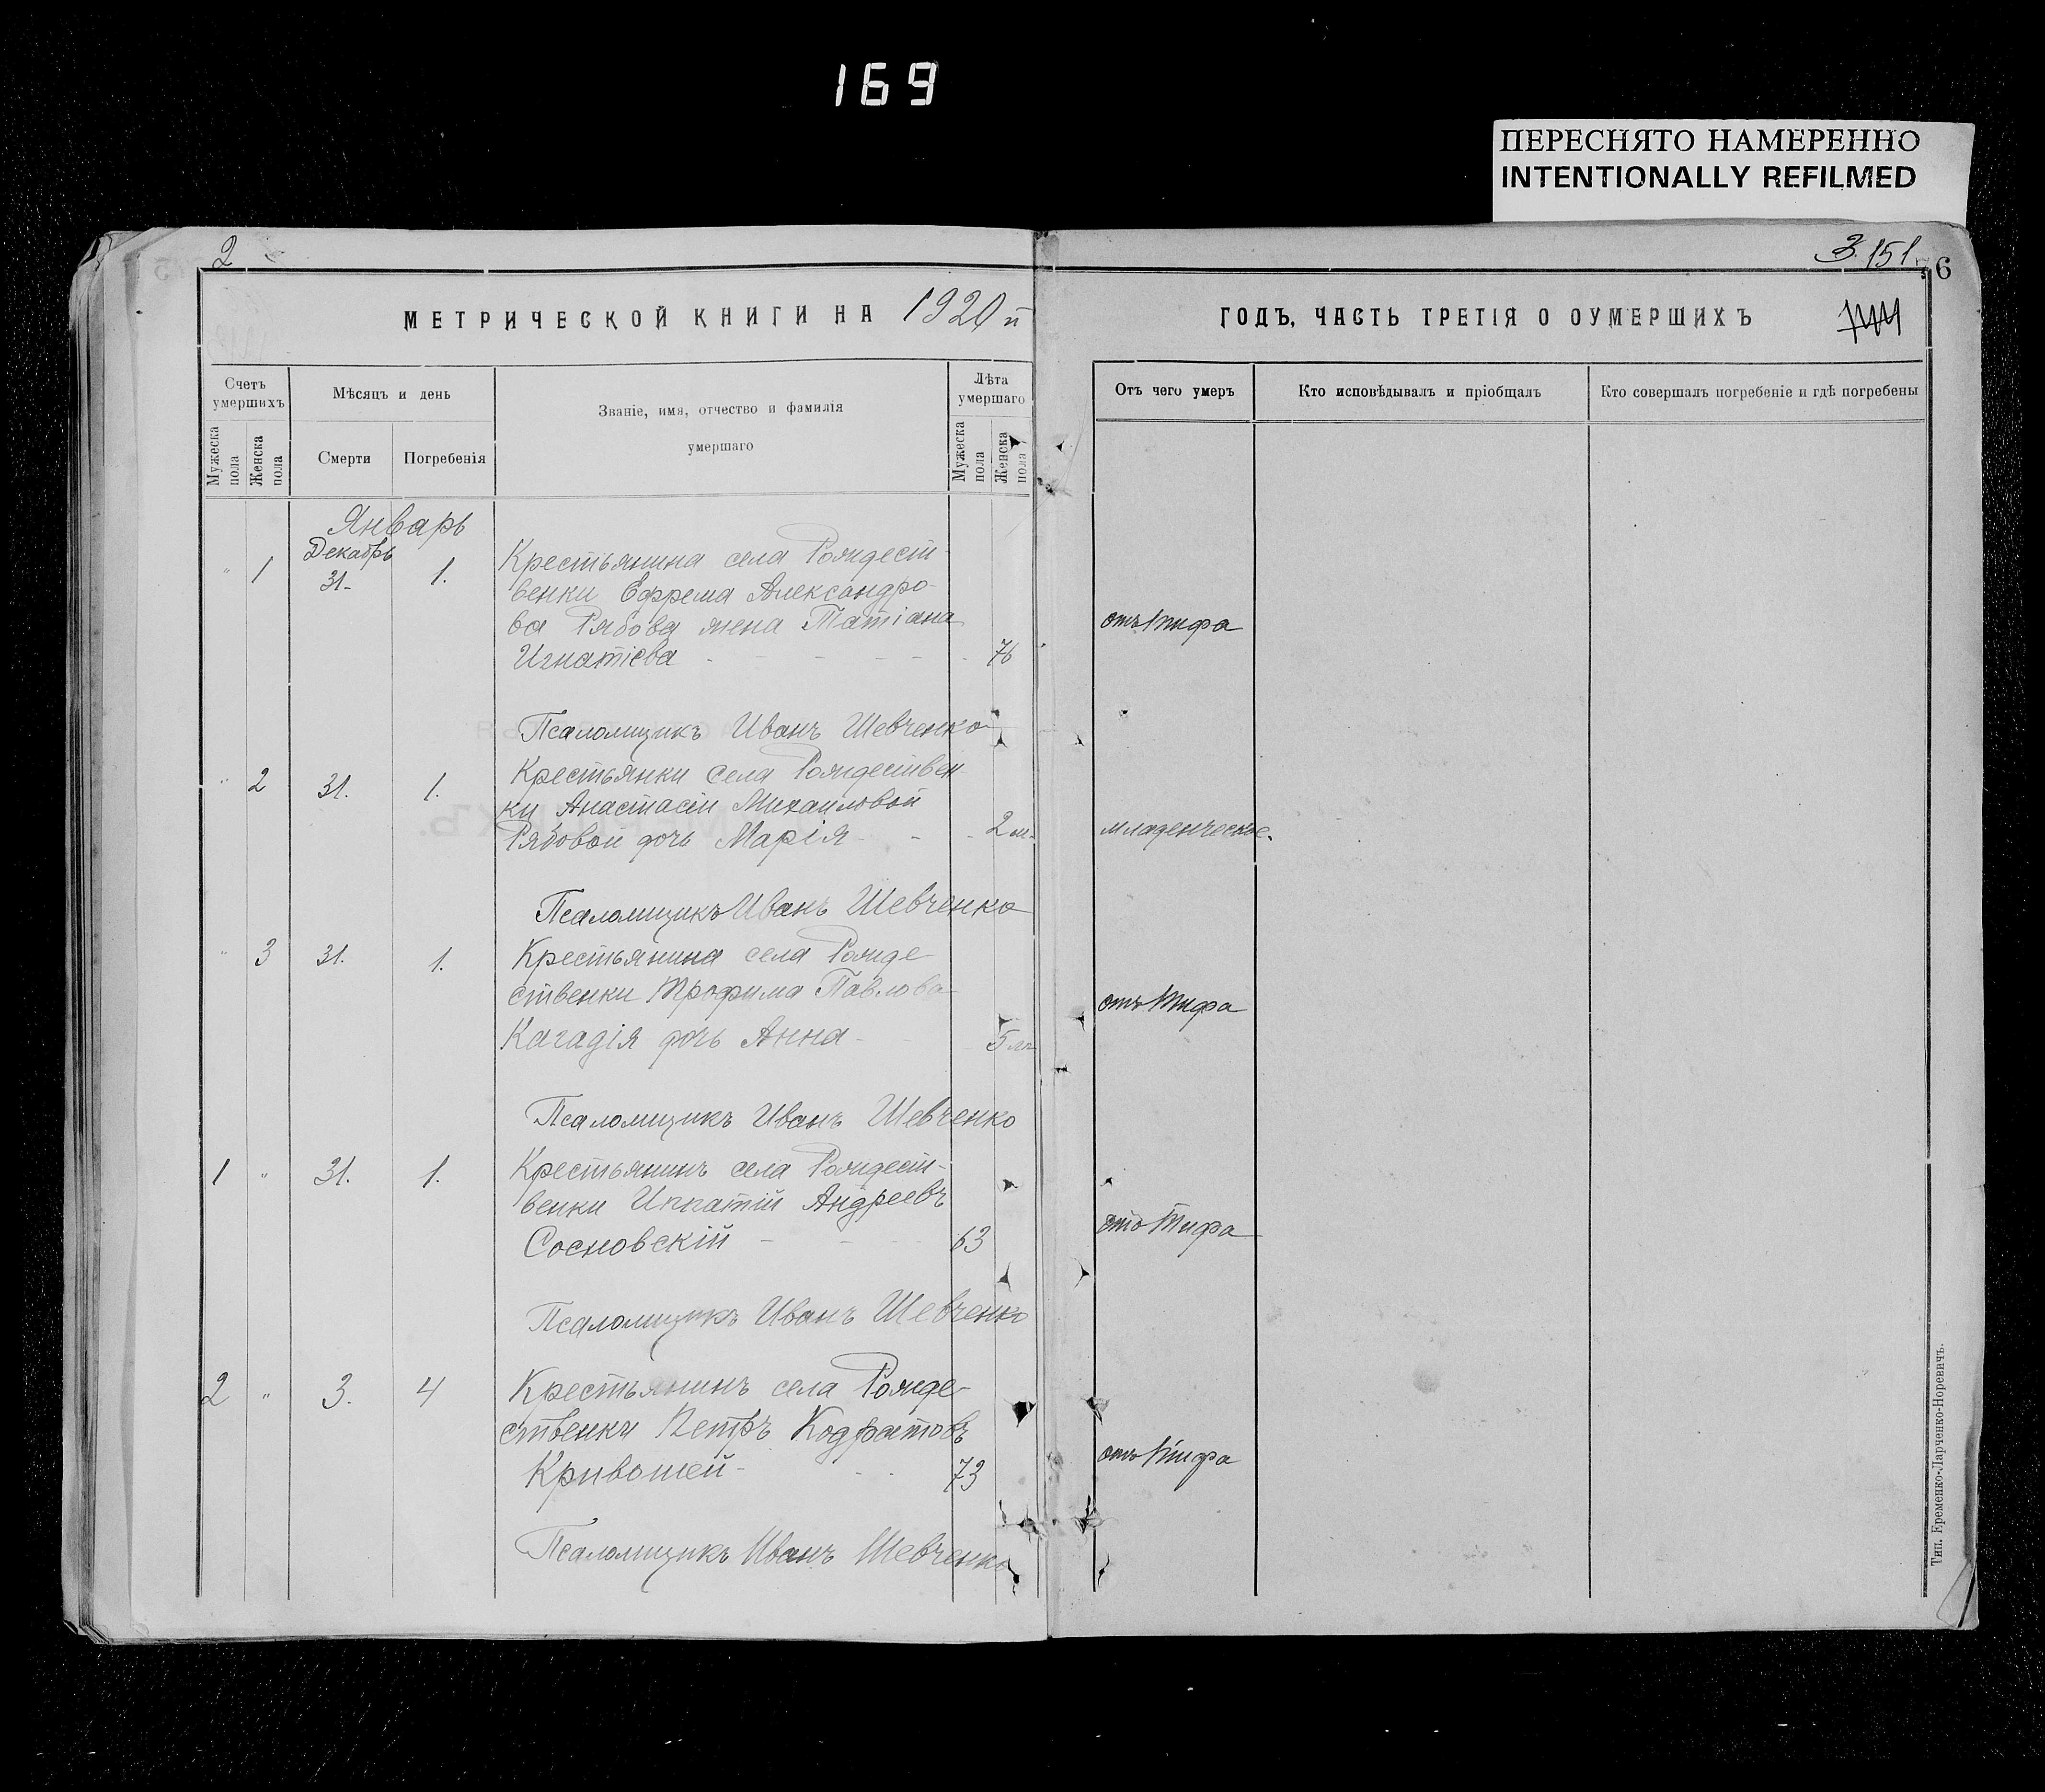 169
ПЕРЕСНЯТО НАМЕРЕННО
INTENTIONALLY REFILMED
2
3.
151
6
МЕТРИЧЕСКОЙ КНИГИ НА 1920 й
ГОДЪ, ЧАСТЬ ТРЕТІЯ О ОУМЕРШИХЪ
Счетъ умершихъ
Мужеска пола
Женска пола
Мѣсяцъ и день
Смерти
Погребенія
Званіе, имя, отчество и фамилія
умершаго
Лѣта умершаго
Мужеска пола
Женска пола
Отъ чего умеръ
Кто исповѣдывалъ и пріобщалъ
Кто совершалъ погребеніе и гдѣ погребены
Январь
" 1 Декабрь 31. 1. Крестьянина села Рождест-
венки Ефрема Александро-
ва Рябова жена Татіана
Игнатіева 76 отъ тифа
Псаломщикъ Иванъ Шевченко
" 2 31. 1. Крестьянки села Рождествен
ки Анастасіи Михаиловой
Рябовой дочь Марія 2 м. младенческое.
Псаломщикъ Иванъ Шевченко
" 3 31. 1. Крестьянина села Рожде
ственки Трофима Павлова
Кагадія дочь Анна 5 отъ Тифа
Псаломщикъ Иванъ Шевченко
1 " 31. 1. Крестьянинъ села Рождест-
венки Игнатій Андреевъ
Сосновскій 63 отъ Тифа
Псаломщикъ Иванъ Шевченко
2 " 3. 4 Крестьянинъ села Рожде-
ственки Петръ Кодратовъ
Кривошей 73 отъ тифа
Псаломщикъ Иванъ Шевченко
Тип. Еременко-Ларченко-Норевичъ.